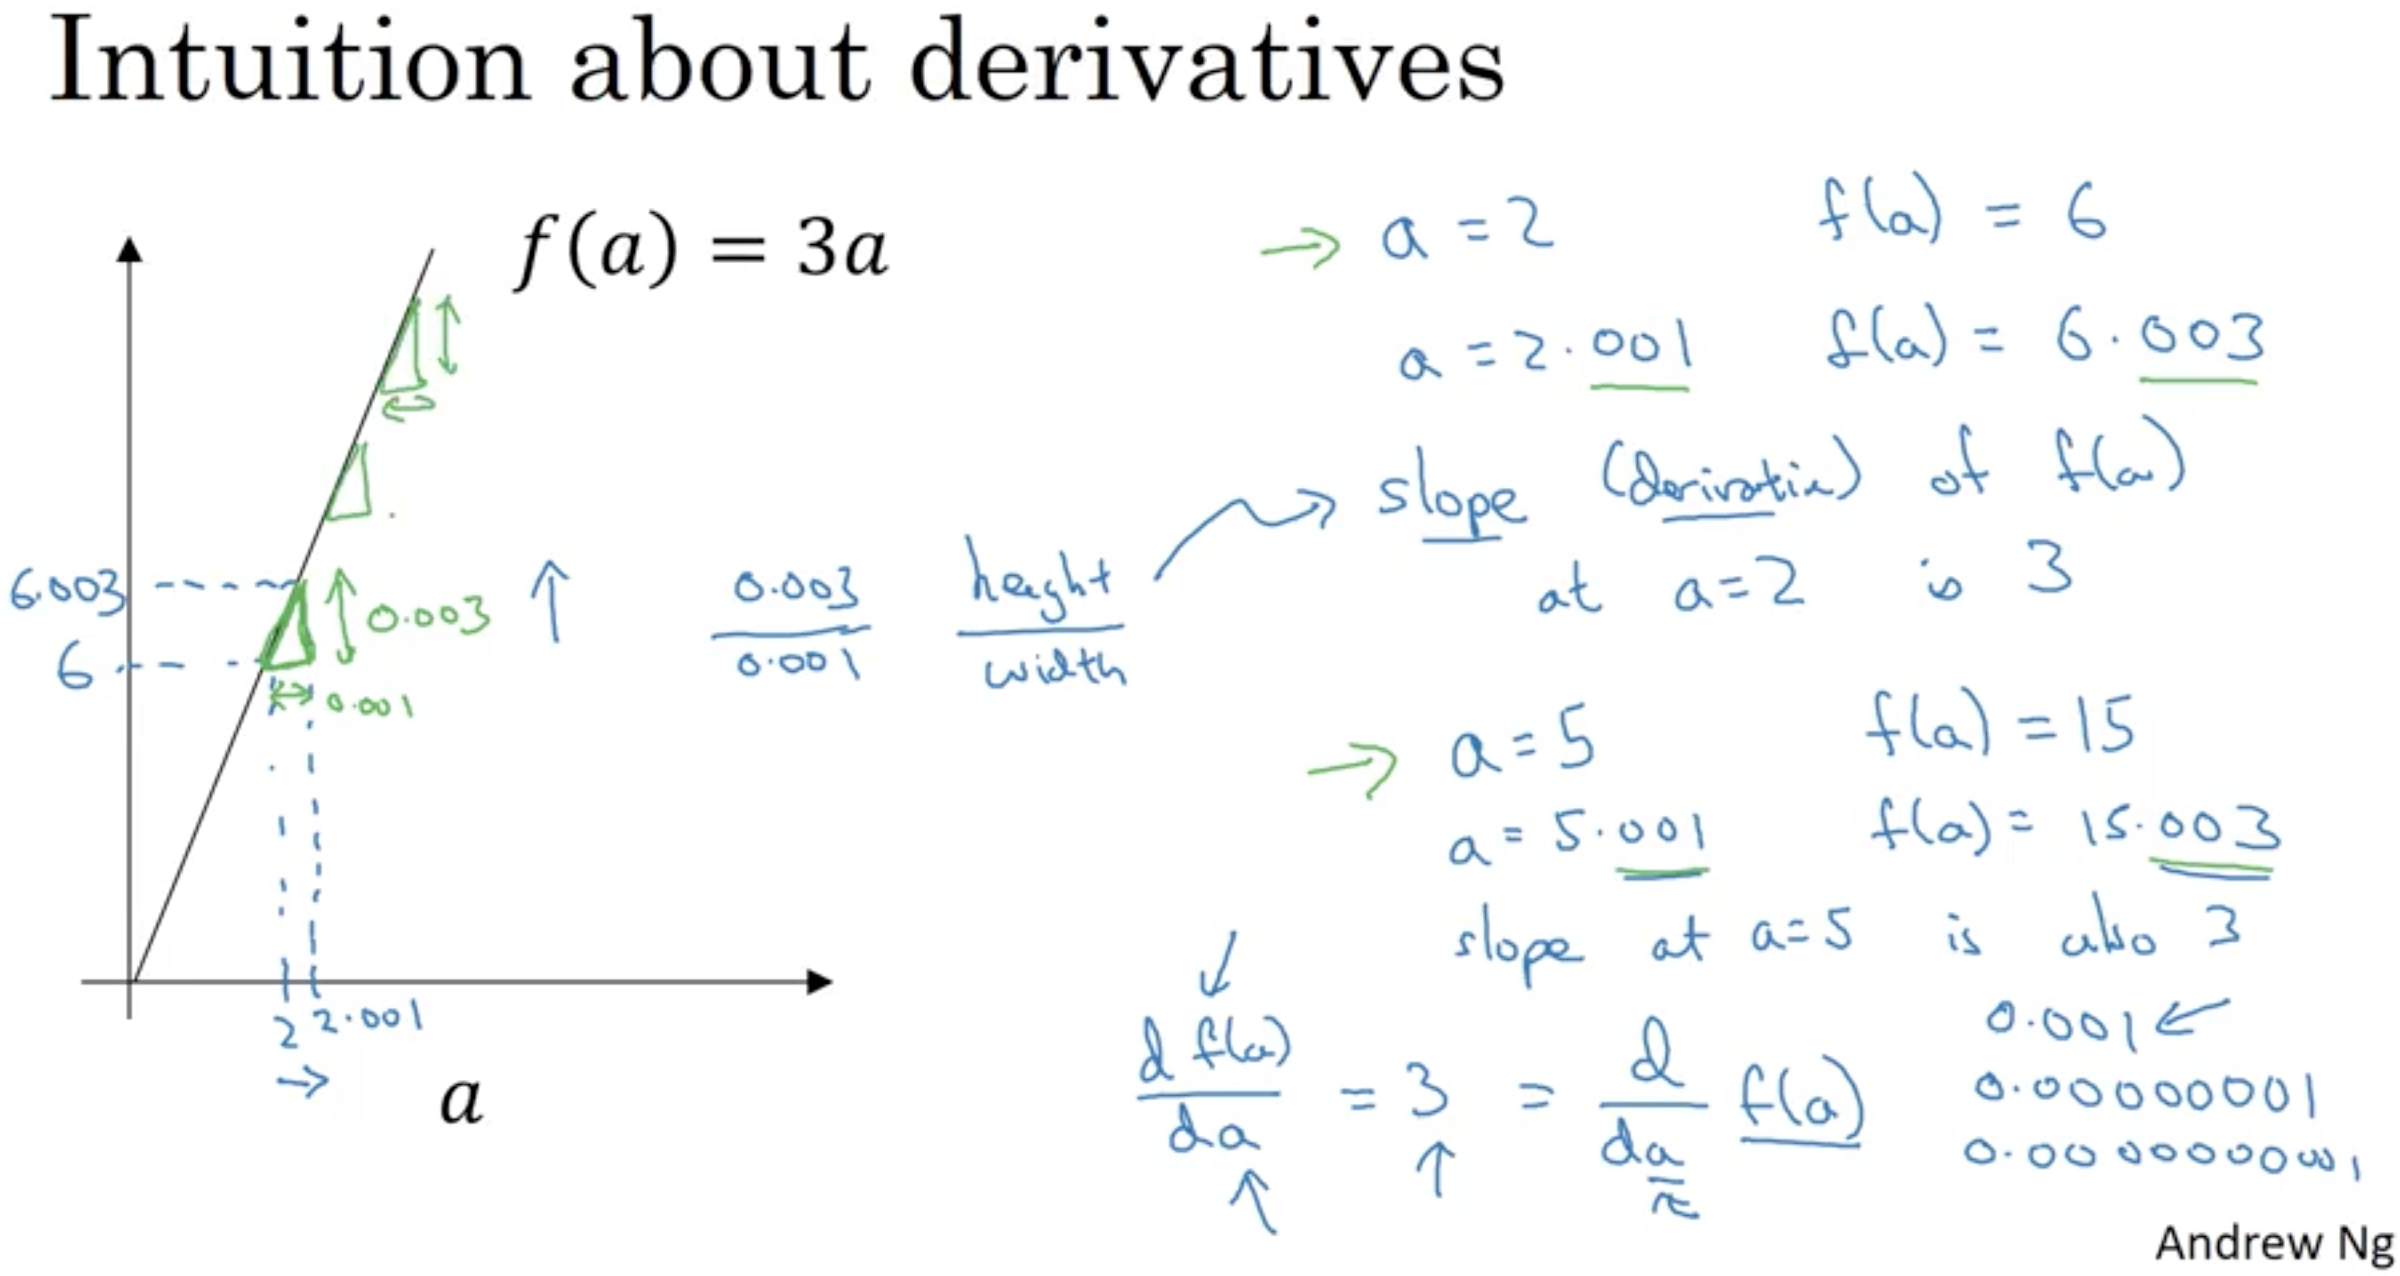 Intuition about derivatives
f(a) = 3a
6.003
6
0.003
0.001
2 2.001
a
0.003 height
0.001 width
a = 2 f(a) = 6
a = 2.001 f(a) = 6.003
slope (derivative) of f(a)
at a=2 is 3
a = 5 f(a) = 15
a = 5.001 f(a) = 15.003
slope at a=5 is also 3
d f(a) / da = 3 = d / da f(a)
0.001
0.00000001
0.0000000001
Andrew Ng